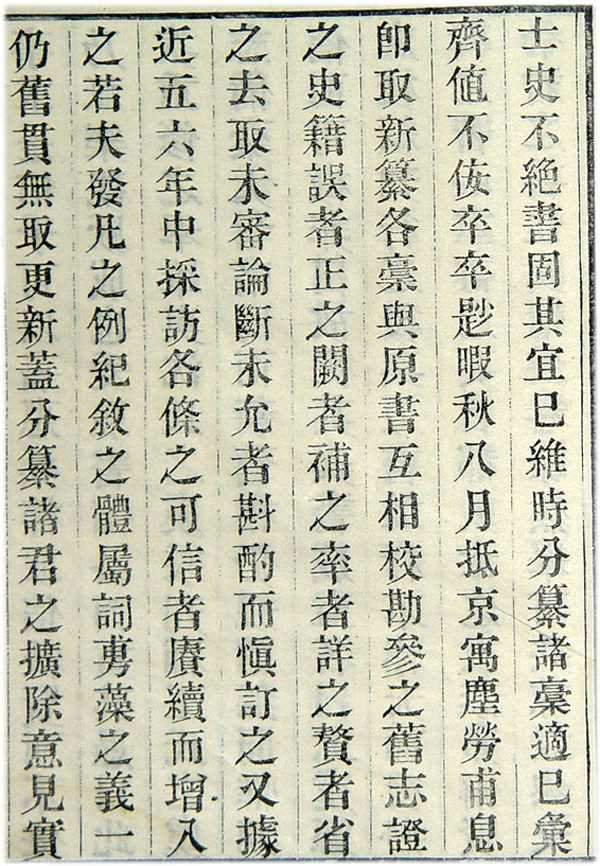 士史不絶書固其宜已維時分纂諸稾適已彙
齊値不侫卒卒尟暇秋八月抵京寓塵勞甫息
卽取新纂各稾與原書互相校勘參之舊志證
之史籍誤者正之闕者補之率者詳之贅者省
之去取未審論斷未允者斟酌而愼訂之又據
近五六年中採訪各條之可信者賡續而增入
之若夫發凡之例紀敘之體屬詞旉藻之義一
仍舊貫無取更新蓋分纂諸君之擴除意見實